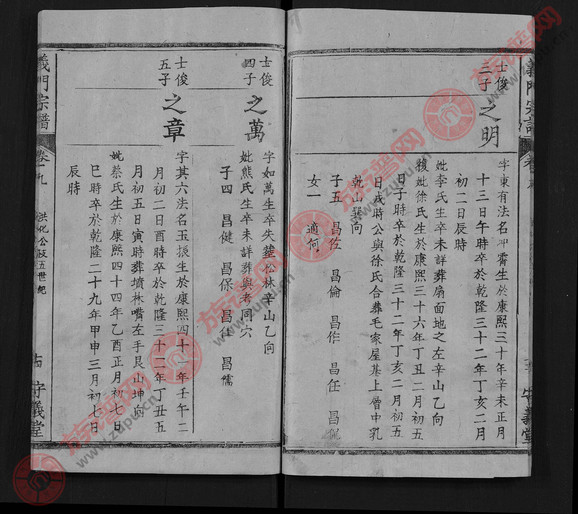 士俊
三子
之明
字東有法名坤霽生於康熙三十年辛未正月
十三日午時卒於乾隆三十二年丁亥二月
初二日辰時
妣李氏生卒未詳葬扇面地之左辛山乙向
賴妣徐氏生於康熙三十六年丁丑二月初五
日子時卒於乾隆三十二年丁亥二月初五
日戌時公與徐氏合葬毛家屋基上曾中乳
乾山巽向
子五 昌佐 昌倫 昌作 昌任 昌
女一 適何
士俊
四子
之萬
字如萬生卒失葬松林辛山乙向
妣熊氏生卒未詳葬與考同穴
子四 昌健 昌保 昌任 昌儒
士俊
五子
之章
字其六法名玉振生於康熙四十一年壬午二
月初二日酉時卒於乾隆三十二年丁丑五
月初五日寅時葬墳林嘴左手艮山坤向
妣蔡氏生於康熙四十四年乙酉正月初七日
巳時卒於乾隆二十九年甲申三月初七日
辰時
義門宗譜
卷十九
洪化公派五世紀
守義堂
族譜網
www.zupu.cn